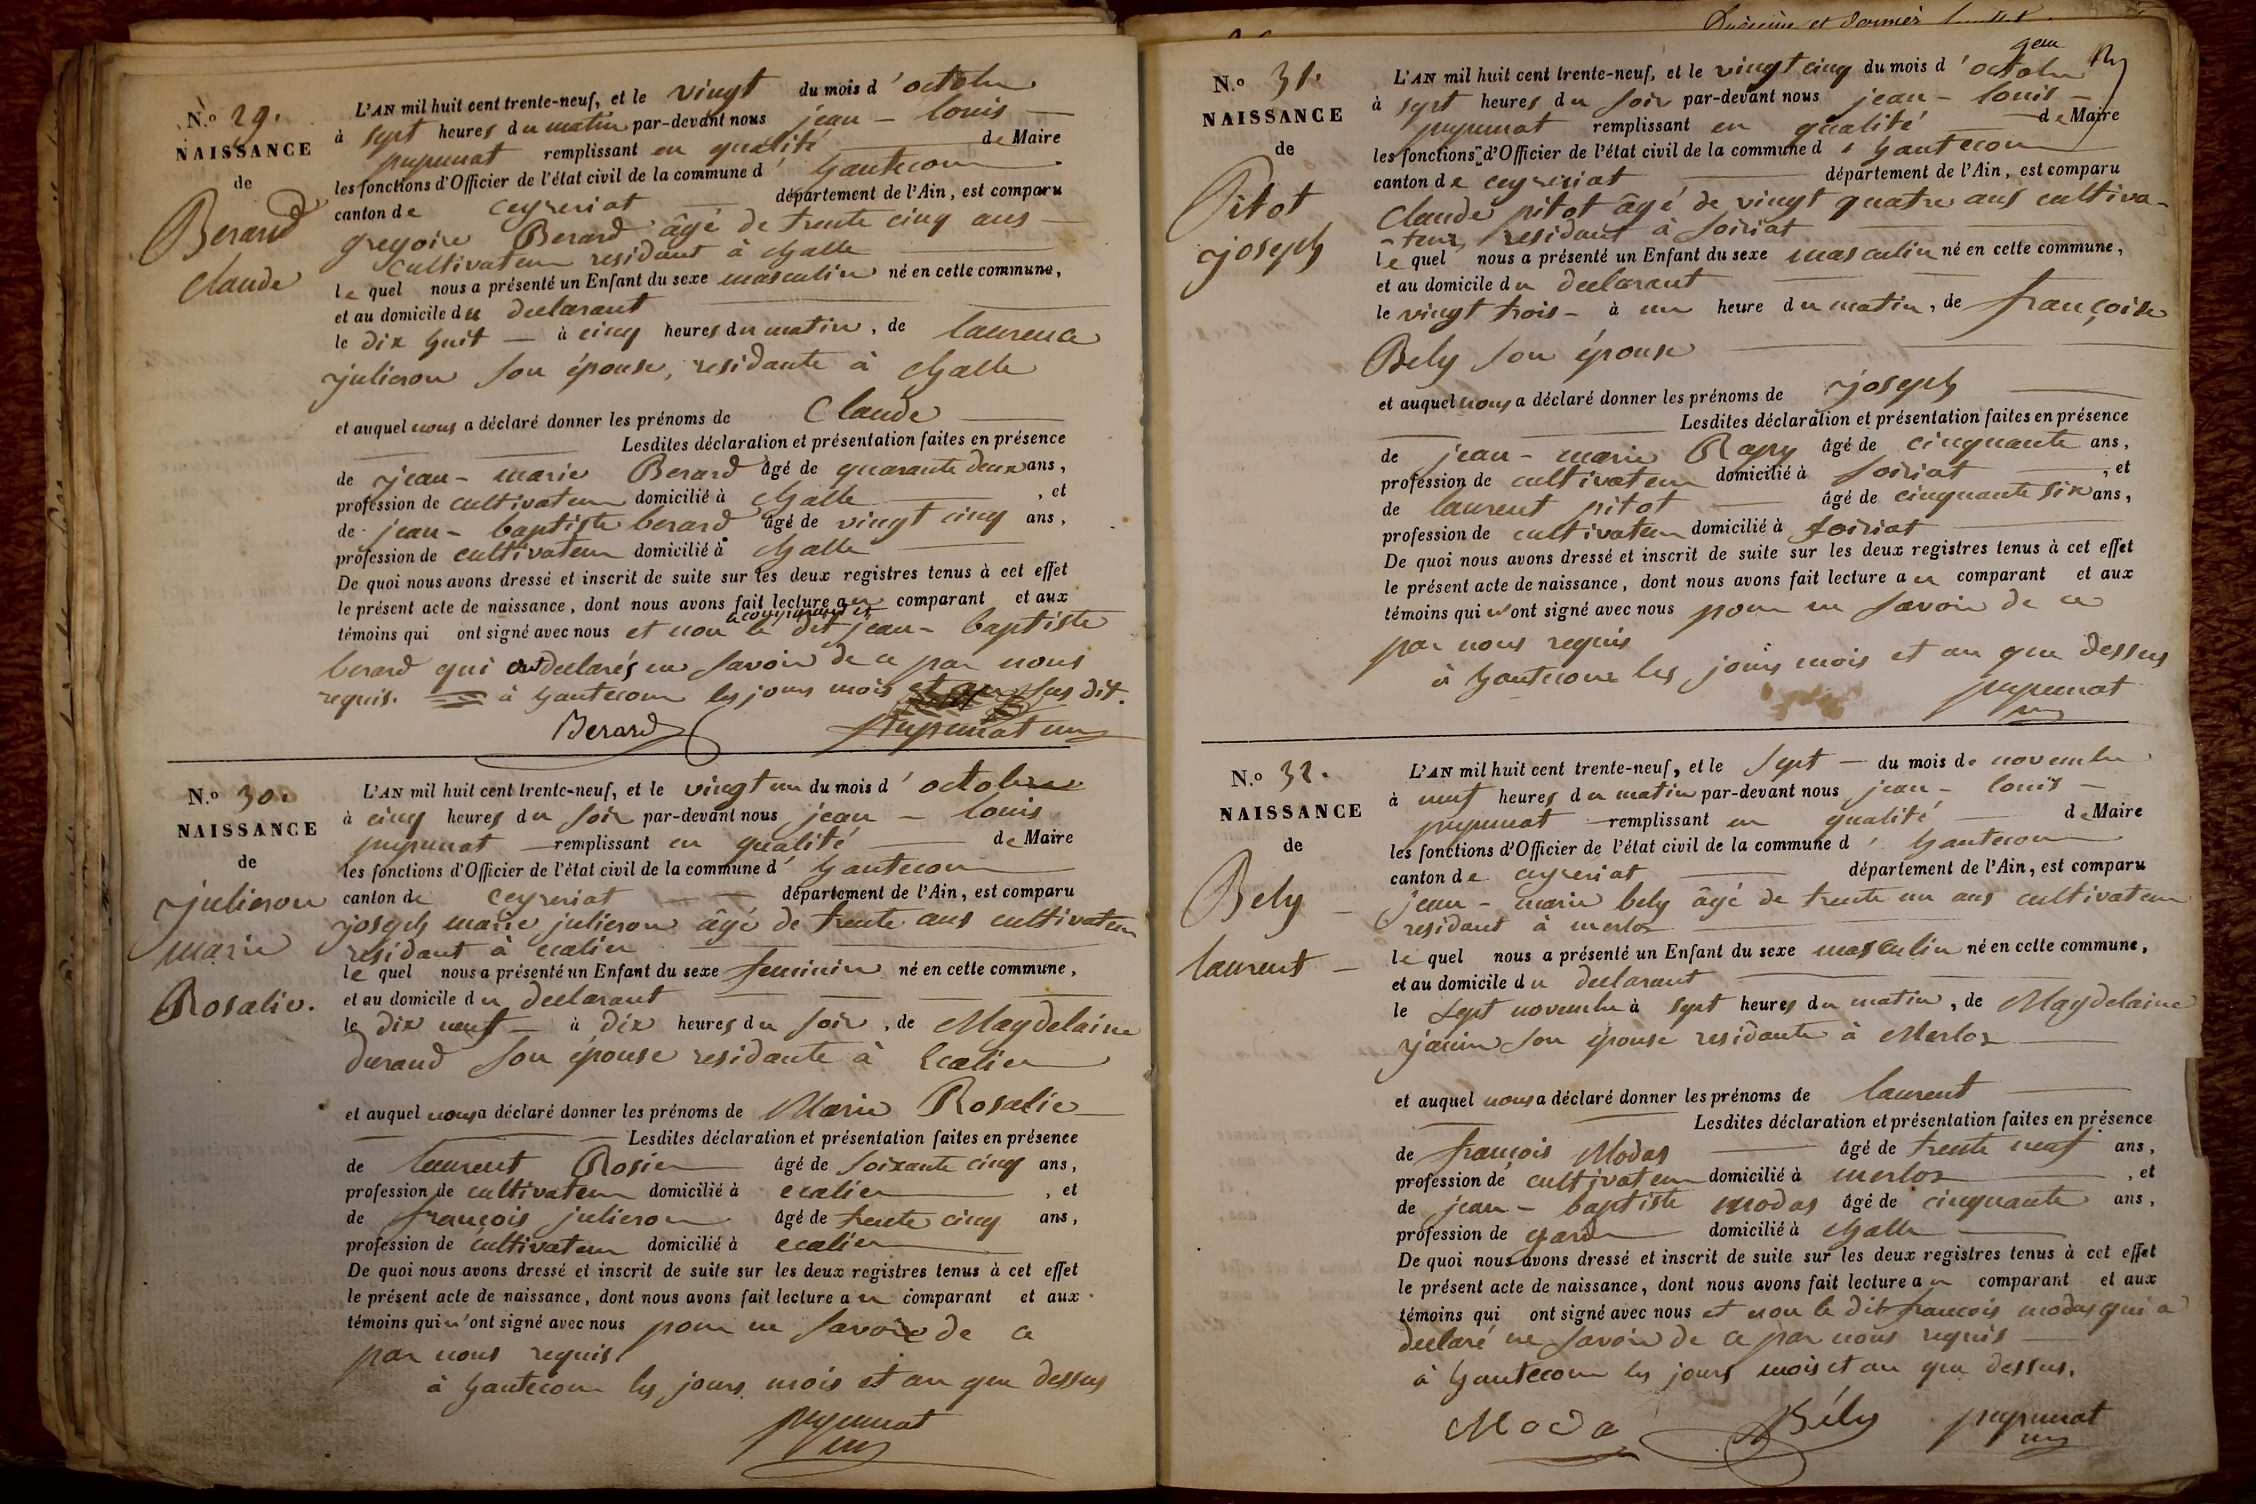 N.º 29.
NAISSANCE
de
Berard
claude
L'AN mil huit cent trente-neuf, et le vingt du mois d'octobre
à sept heures du matin par-devant nous jean - louis -
pupunat remplissant en qualité de Maire
les fonctions d'Officier de l'état civil de la commune d'hautecour
canton de ceyzeriat département de l'Ain, est comparu
gregoire Berard âgé de trente cinq ans
cultivateur residant à challe
le quel nous a présenté un Enfant du sexe masculin né en cette commune,
et au domicile du declarant
le dix huit - à cinq heures du matin, de laurence
julieron son épouse, residante à challe
et auquel nous a déclaré donner les prénoms de Claude
Lesdites déclaration et présentation faites en présence
de jean - marie Berard âgé de quarante deux ans,
profession de cultivateur domicilié à challe, et
de jean - baptiste berard âgé de vingt cinq ans,
profession de cultivateur domicilié à challe
De quoi nous avons dressé et inscrit de suite sur les deux registres tenus à cet effet
le présent acte de naissance, dont nous avons fait lecture au comparant et aux
témoins qui ont signé avec nous et non le comparant et le dit jean - baptiste
berard qui ont declarés ne savoir de ce par nous
requis. à hautecour les jours mois et an sus dit.
Berard pupunat
N.º 30.
NAISSANCE
de
julieron
marie
Rosalie.
L'AN mil huit cent trente-neuf, et le vingt un du mois d'octobre
à cinq heures du soir par-devant nous jean - louis
pupunat remplissant en qualité de Maire
les fonctions d'Officier de l'état civil de la commune d'hautecour
canton de ceyzeriat département de l'Ain, est comparu
joseph marie julieron âgé de trente ans cultivateur
residant à ecalier
le quel nous a présenté un Enfant du sexe feminin né en cette commune,
et au domicile du declarant
le dix neuf - à dix heures du soir, de Magdelaine
durand son épouse residante à Ecalier
et auquel nous a déclaré donner les prénoms de Marie Rosalie
Lesdites déclaration et présentation faites en présence
de laurent Rosier âgé de soixante cinq ans,
profession de cultivateur domicilié à ecalier, et
de françois julieron âgé de trente cinq ans,
profession de cultivateur domicilié à ecalier
De quoi nous avons dressé et inscrit de suite sur les deux registres tenus à cet effet
le présent acte de naissance, dont nous avons fait lecture au comparant et aux
témoins qui n'ont signé avec nous pour ne savoir de ce
par nous requis
à hautecour les jours mois et an que dessus
pupunat
N.º 31.
NAISSANCE
de
Pitot
joseph
L'AN mil huit cent trente-neuf, et le vingt cinq du mois d'octobre
à sept heures du soir par-devant nous jean - louis -
pupunat remplissant en qualité de Maire
les fonctions d'Officier de l'état civil de la commune d'hautecour
canton de ceyzeriat département de l'Ain, est comparu
claude pitot âgé de vingt quatre ans cultiva-
-teur, residant à soiriat
le quel nous a présenté un Enfant du sexe masculin né en cette commune,
et au domicile du declarant
le vingt trois - à un heure du matin, de françoise
Bely son épouse
et auquel nous a déclaré donner les prénoms de joseph
Lesdites déclaration et présentation faites en présence
de jean - marie Rapy âgé de cinquante ans,
profession de cultivateur domicilié à soiriat, et
de laurent pitot âgé de cinquante six ans,
profession de cultivateur domicilié à soiriat
De quoi nous avons dressé et inscrit de suite sur les deux registres tenus à cet effet
le présent acte de naissance, dont nous avons fait lecture au comparant et aux
témoins qui n'ont signé avec nous pour ne savoir de ce
par nous requis
à hautecour les jours mois et an que dessus
pupunat
N.º 32.
NAISSANCE
de
Bely
laurent
L'AN mil huit cent trente-neuf, et le sept - du mois de novembre
à neuf heures du matin par-devant nous jean - louis -
pupunat remplissant en qualité de Maire
les fonctions d'Officier de l'état civil de la commune d'hautecour
canton de ceyzeriat département de l'Ain, est comparu
jean - marie bely âgé de trente un ans cultivateur
residant à merloz
le quel nous a présenté un Enfant du sexe masculin né en cette commune,
et au domicile du declarant
le sept novembre à sept heures du matin, de Magdelaine
janin son épouse residante à Merloz
et auquel nous a déclaré donner les prénoms de laurent
Lesdites déclaration et présentation faites en présence
de françois Modas âgé de trente neuf ans,
profession de cultivateur domicilié à merloz, et
de jean - baptiste modas âgé de cinquante ans,
profession de garde domicilié à challe
De quoi nous avons dressé et inscrit de suite sur les deux registres tenus à cet effet
le présent acte de naissance, dont nous avons fait lecture au comparant et aux
témoins qui ont signé avec nous et non le dit françois modas qui a
declaré ne savoir de ce par nous requis
à hautecour les jours mois et an que dessus.
Moda Bély pupunat